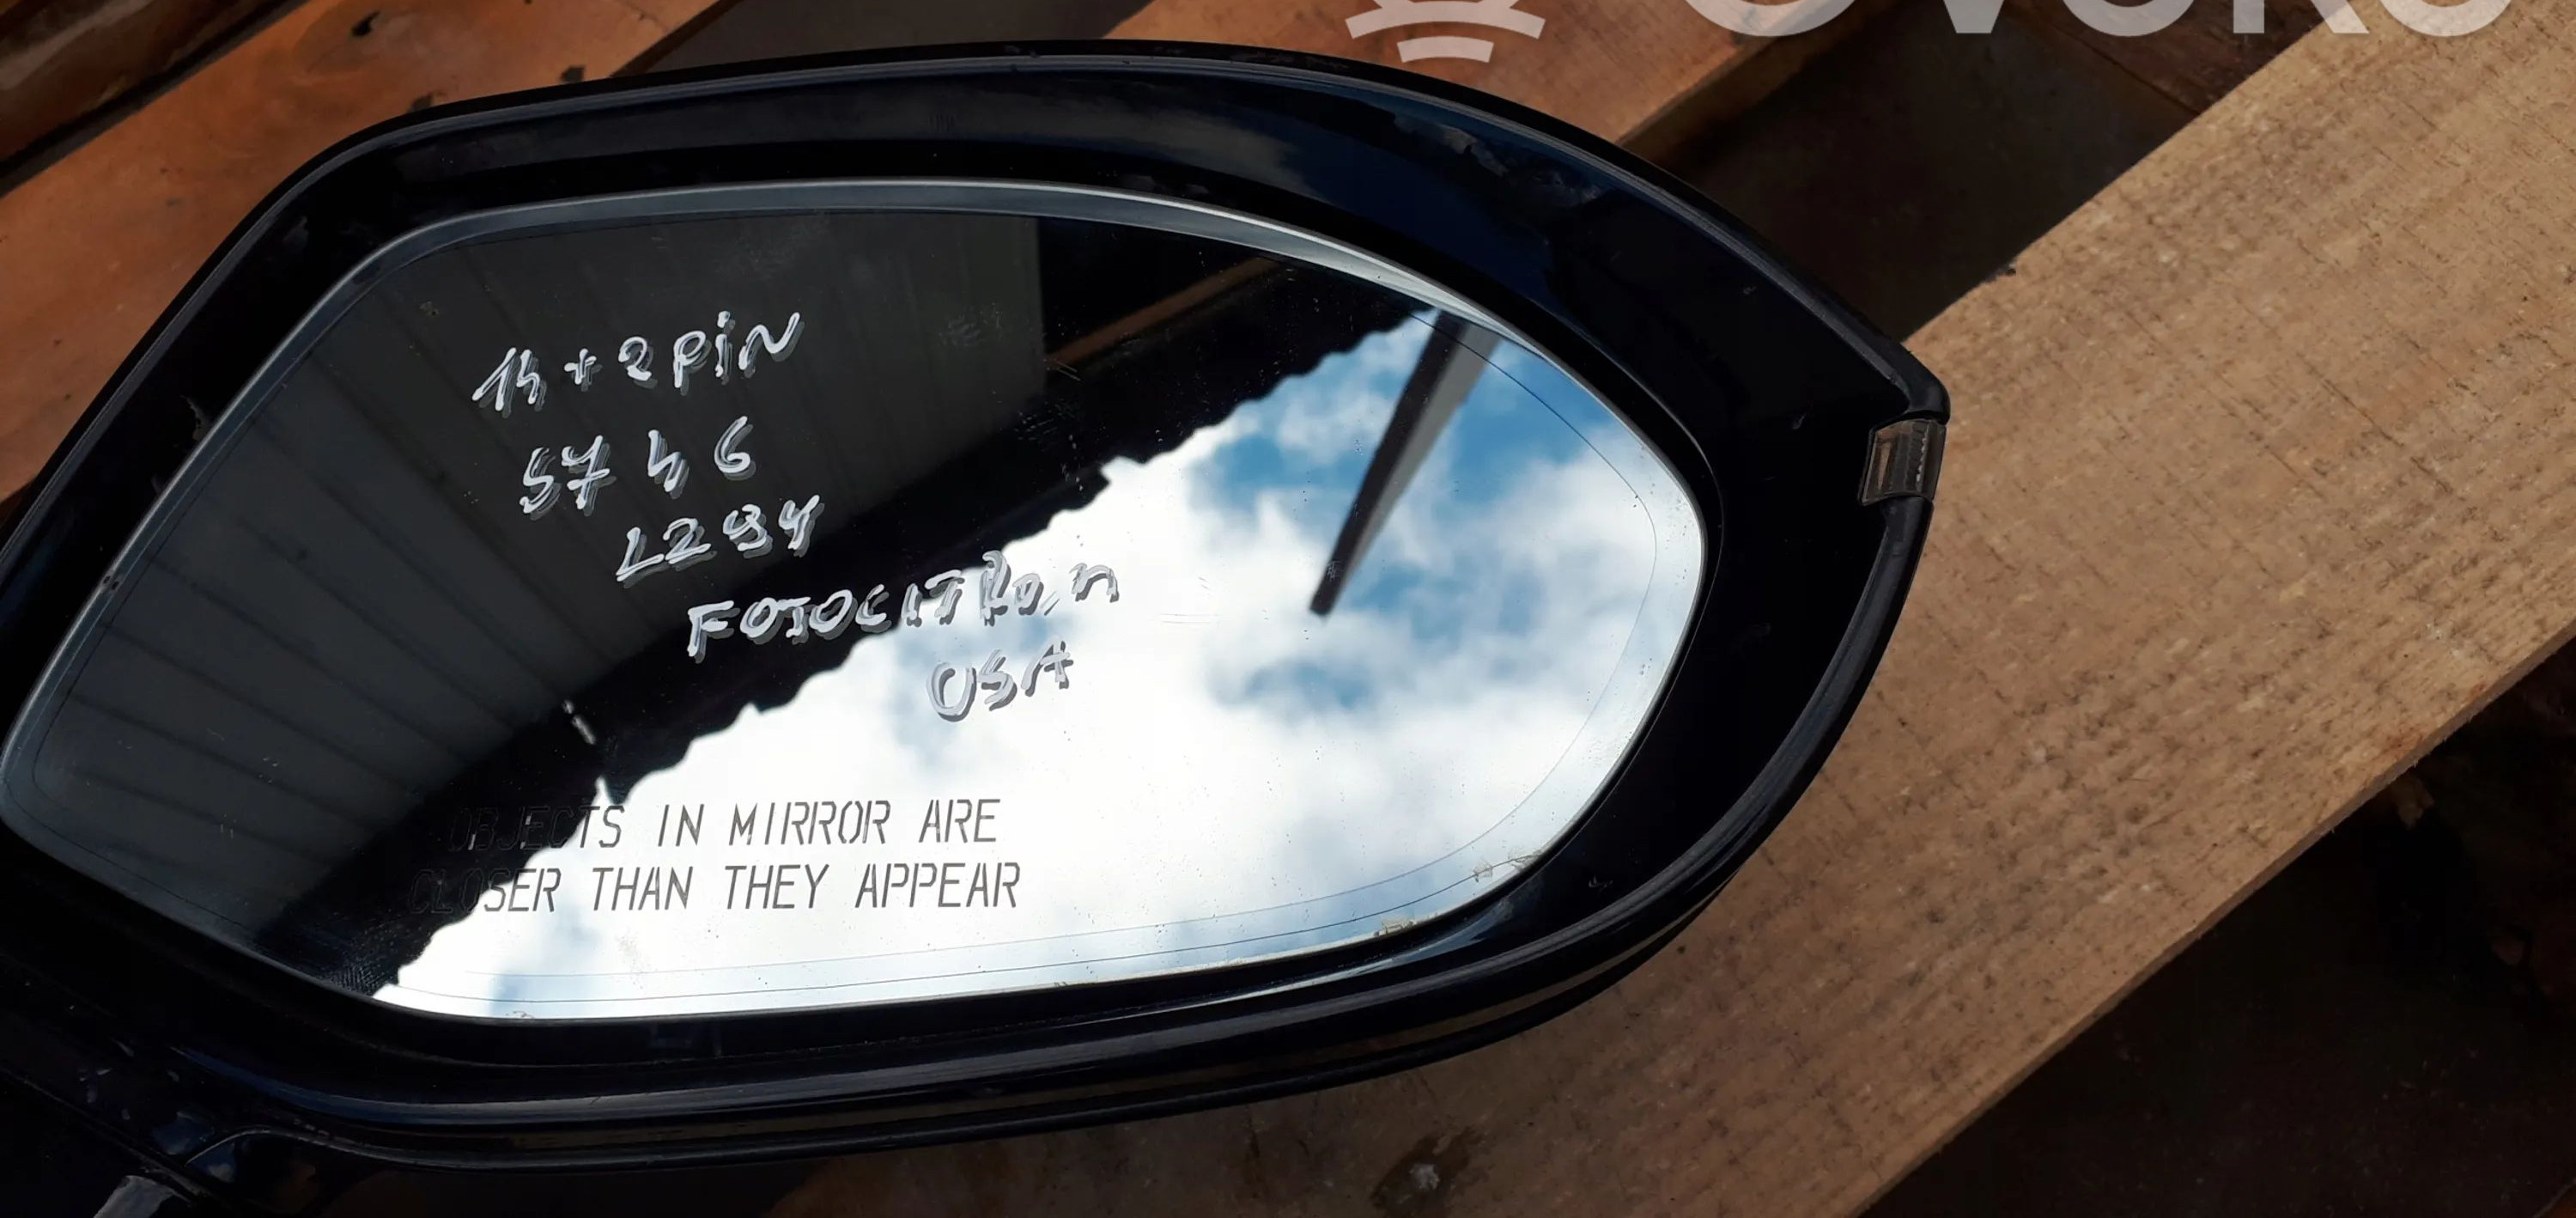 14+2 PiN
5746
L294
FOTOCITRON
USA
OBJECTS IN MIRROR ARE
CLOSER THAN THEY APPEAR